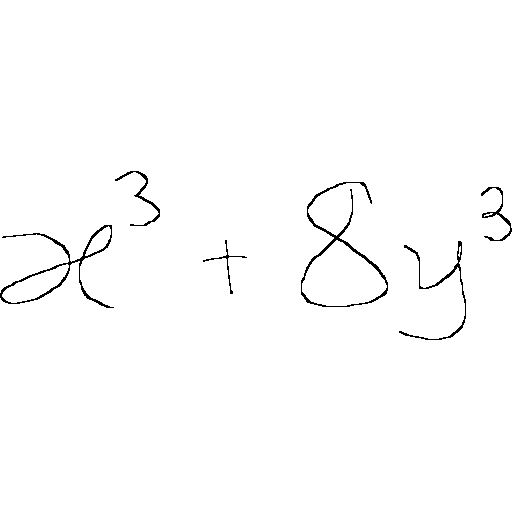 x³ + 8y³